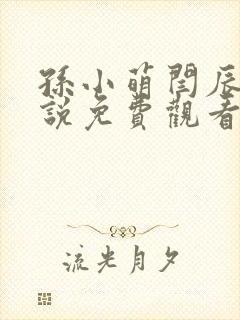 孫小萌閆辰
說免費觀看
流光月夕